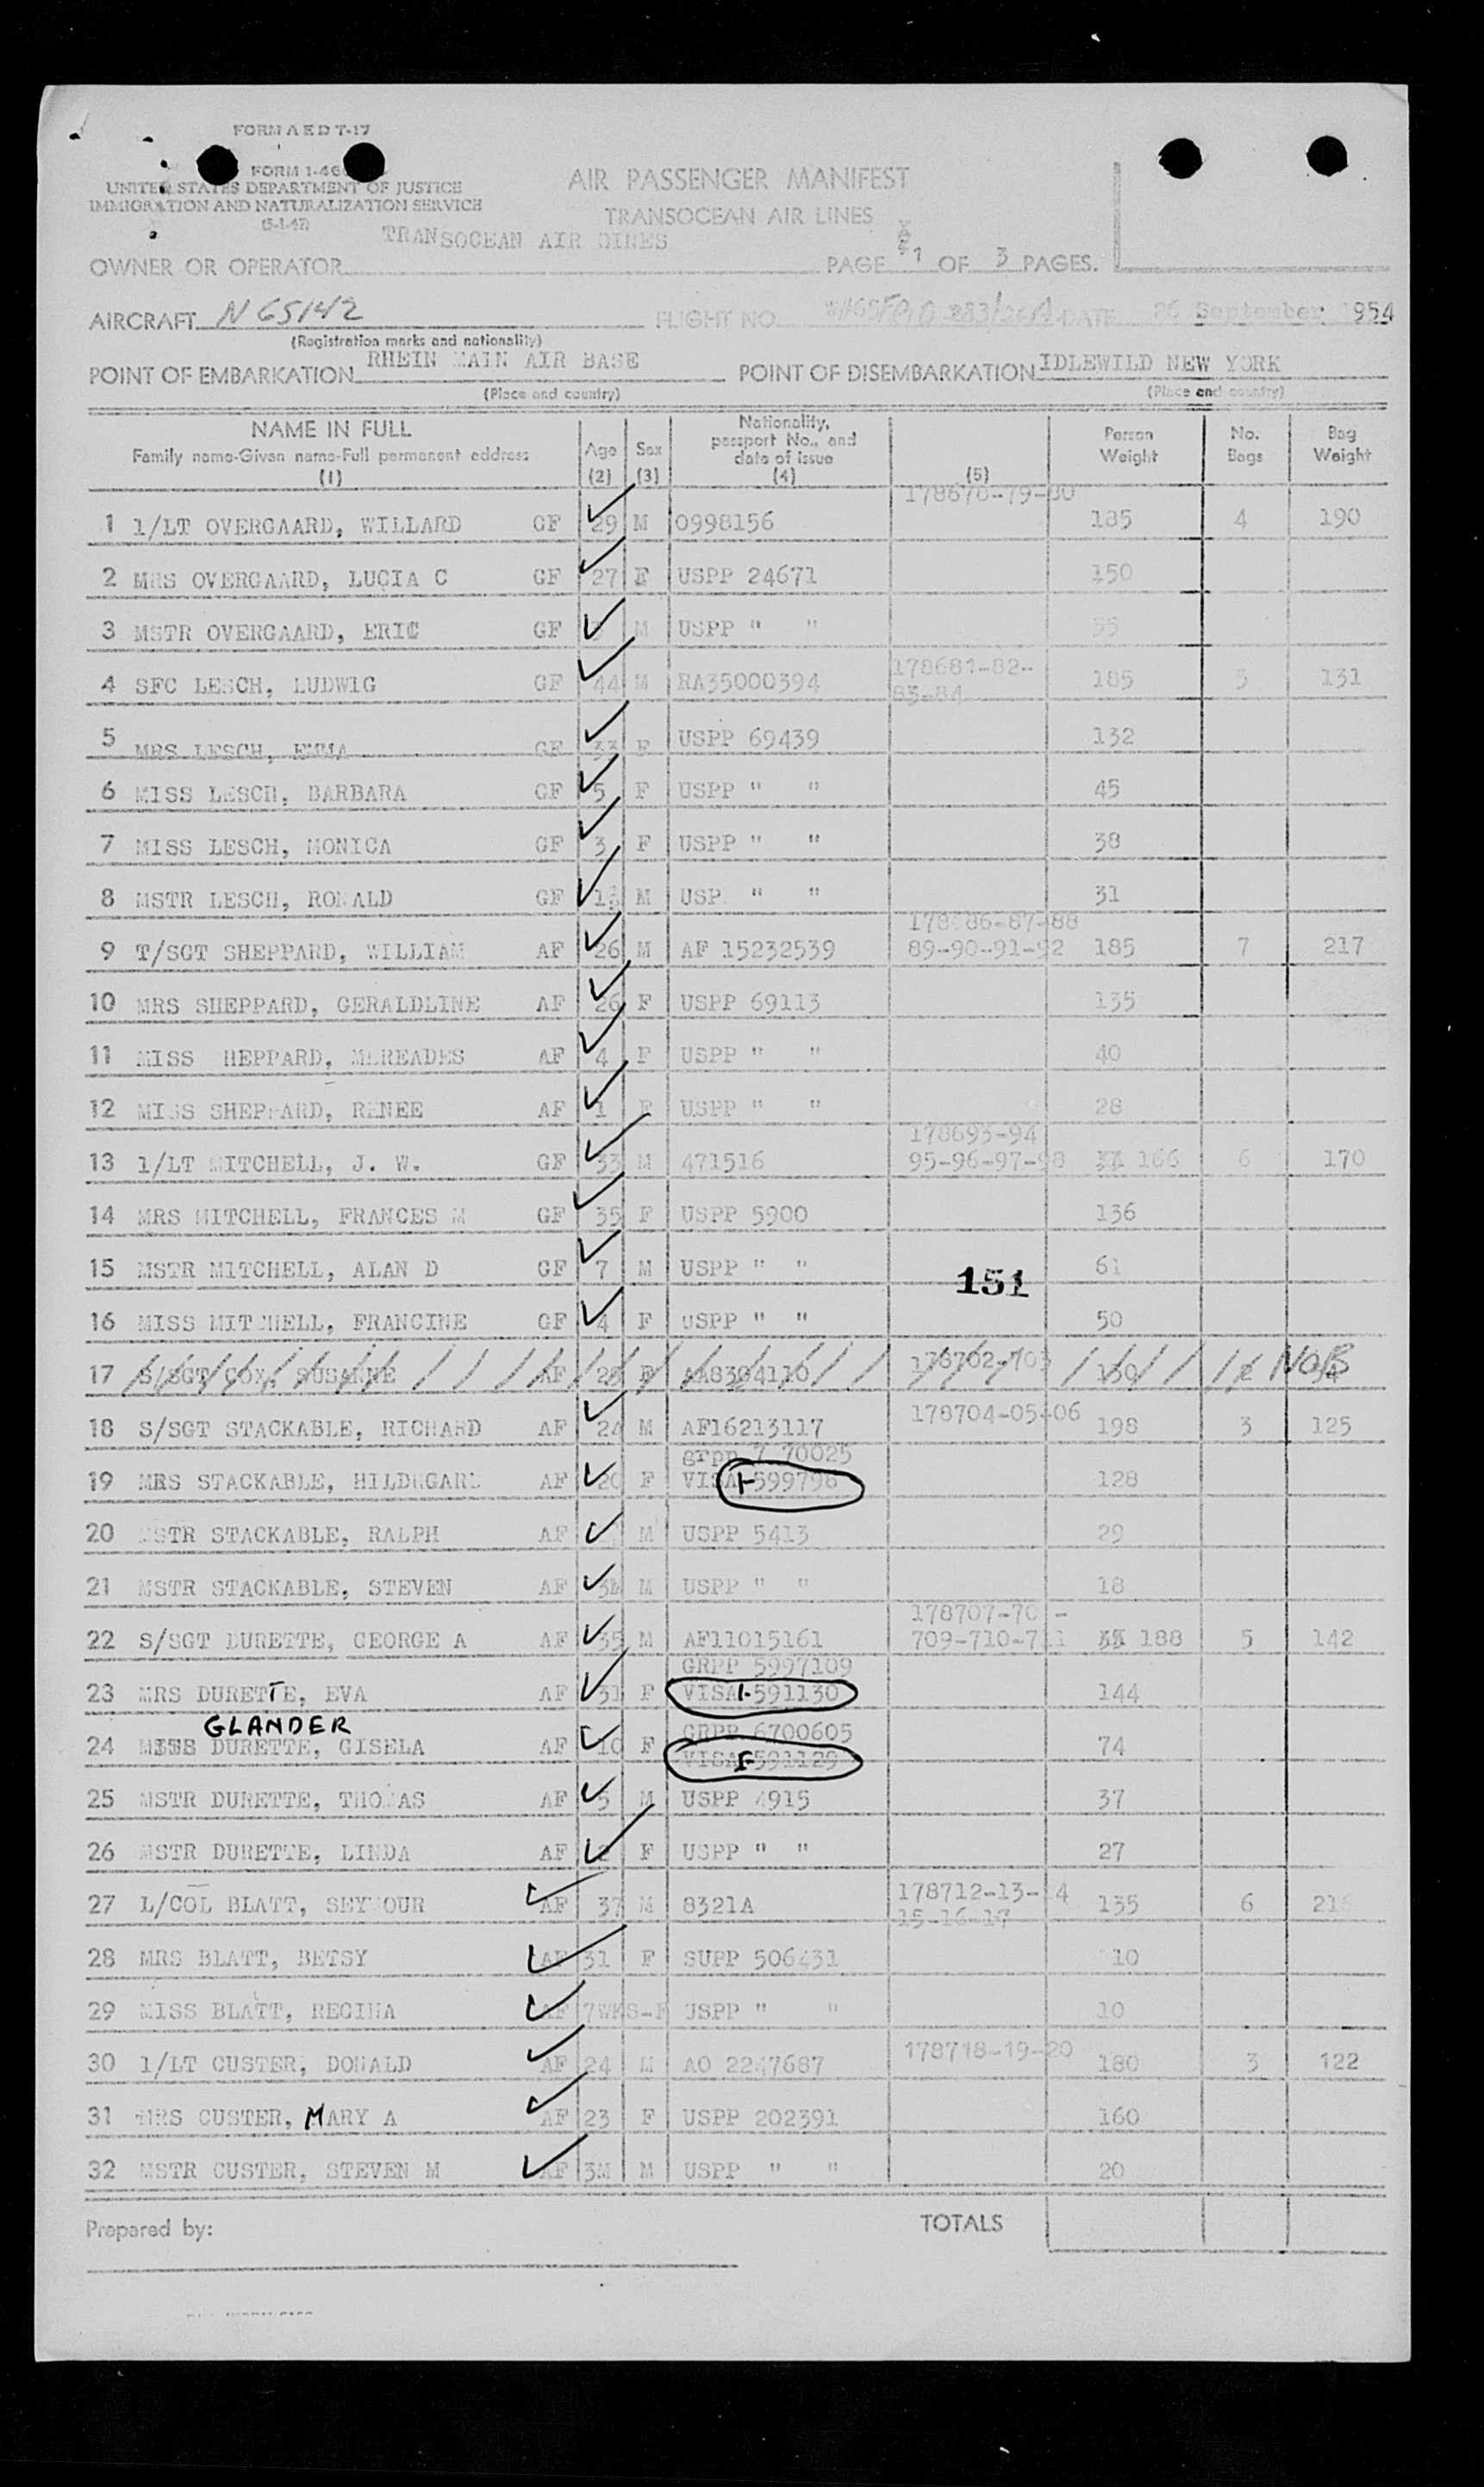 FORM A E D T-17
FORM 1-46
UNITED STATES DEPARTMENT OF JUSTICE
IMMIGRATION AND NATURALIZATION SERVICE
(5-1-47)
AIR PASSENGER MANIFEST
TRANSOCEAN AIR LINES
TRANSOCEAN AIR LINES
OWNER OR OPERATOR
PAGE 1 OF 3 PAGES.
AIRCRAFT N65142 FLIGHT NO. DATE 26 September 1954
(Registration marks and nationality)
POINT OF EMBARKATION RHEIN MAIN AIR BASE POINT OF DISEMBARKATION IDLEWILD NEW YORK
(Place and country) (Place and country)
NAME IN FULL Family name-Given name-Full permanent address (1) Age (2) Sex (3) Nationality, passport No., and date of issue (4) (5) Person Weight No. Bags Bag Weight
178678-79-80
1 1/LT OVERGAARD, WILLARD GF 29 M 0998156 185 4 190
2 MRS OVERGAARD, LUCIA C GF 27 F USPP 24671 150
3 MSTR OVERGAARD, ERIC GF M USPP " " 55
178681-82-
4 SFC LESCH, LUDWIG GF 44 M RA35000394 83-84 185 5 131
5 MRS LESCH, EMMA GF 33 F USPP 69439 132
6 MISS LESCH, BARBARA GF 5 F USPP " " 45
7 MISS LESCH, MONICA GF 3 F USPP " " 38
8 MSTR LESCH, RONALD GF M USP " " 31
178686-87-88
9 T/SGT SHEPPARD, WILLIAM AF 26 M AF 15232539 89-90-91-92 185 7 217
10 MRS SHEPPARD, GERALDLINE AF 26 F USPP 69113 135
11 MISS HEPPARD, MEREADES AF 4 F USPP " " 40
12 MISS SHEPPARD, RENEE AF 1 F USPP " " 28
178693-94
13 1/LT MITCHELL, J. W. GF 33 M 471516 95-96-97-98 166 6 170
14 MRS MITCHELL, FRANCES M GF 35 F USPP 5900 136
15 MSTR MITCHELL, ALAN D GF 7 M USPP " " 61
151
16 MISS MITCHELL, FRANCINE GF 4 F USPP " " 50
17 S/SGT COX, SUSANNE AF 28 F AA8304110 178702-703 130 NOB
18 S/SGT STACKABLE, RICHARD AF 24 M AF16213117 178704-05-06 198 3 125
grpp 7 70025
19 MRS STACKABLE, HILDEGARD AF 20 F VISA I-599796 128
20 MSTR STACKABLE, RALPH AF M USPP 5413 29
21 MSTR STACKABLE, STEVEN AF 3M M USPP " " 18
178707-70 -
22 S/SGT DURETTE, GEORGE A AF 35 M AF11015161 709-710-711 188 5 142
GRPP 5997109
23 MRS DURETTE, EVA AF 31 F VISA I-591130 144
GLANDER GRPP 6700605
24 MISS DURETTE, GISELA AF 10 F 74
VISA I-591129
25 MSTR DURETTE, THOMAS AF 5 M USPP 4915 37
26 MSTR DURETTE, LINDA AF 2 F USPP " " 27
178712-13-14
27 L/COL BLATT, SEYMOUR AF 37 M 8321A 135 6
15-16-17
28 MRS BLATT, BETSY AF 31 F SUPP 506431 110
29 MISS BLATT, REGINA AF 7WKS-F USPP " " 10
30 1/LT CUSTER, DONALD AF 24 M AO 2247687 178718-19-20 180 3 122
31 MRS CUSTER, MARY A AF 23 F USPP 202391 160
32 MSTR CUSTER, STEVEN M AF 3M M USPP " " 20
Prepared by: TOTALS